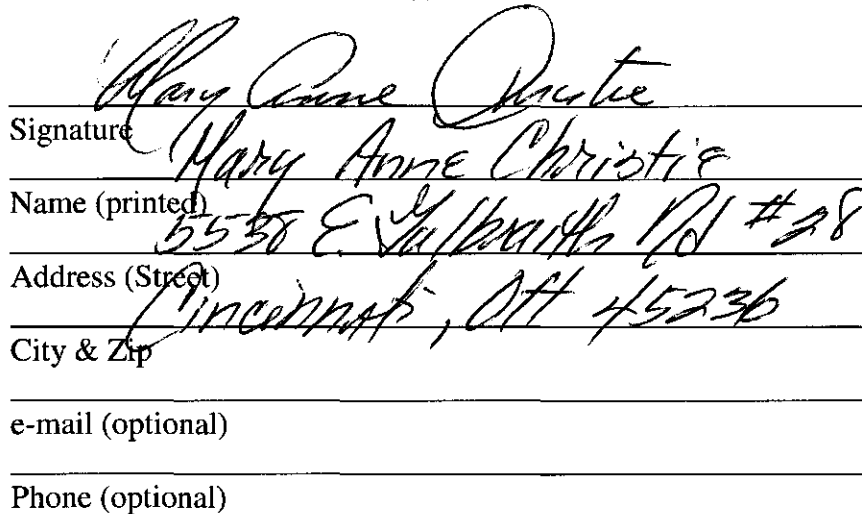 Mary Anne Christie
Signature
Mary Anne Christie
Name (printed)
5538 E. Galbraith Rd #28
Address (Street)
Cincinnati, OH 45236
City & Zip
e-mail (optional)
Phone (optional)